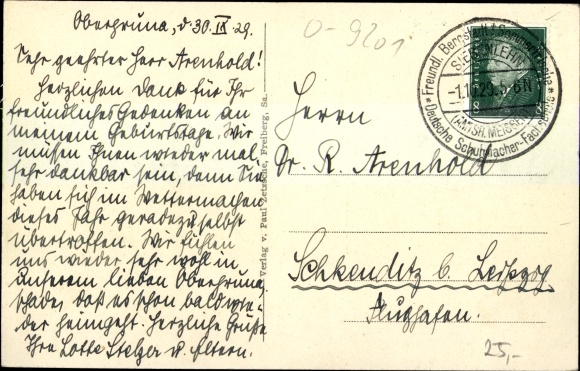 Obergruna, d. 30. IX. 29.
Sehr geehrter Herr Arenhold!
Herzlichen Dank für Ihr
freundliches Gedenken an
meinem Geburtstage. Wir
müssen Ihnen wieder mal
sehr dankbar sein, denn Sie
haben sich im Wettermachen
dieses Jahr geradezu selbst
übertroffen. Wir fühlen
uns wieder sehr wohl in
unserem lieben Obergruna,
schade, daß es schon bald wie-
der heimgeht. Herzliche Grüße
Ihre Lotte Stelzer u. Eltern.
Verlag v. Paul Zetzsche, Freiberg, Sa.
0-9201
Freundl. Bergstadt
SIEBENLEHN
-1.10.29.5-6N
(AMTSH. MEISSEN)
Deutsche Schuhmacher-Fachschule
8
Herrn
Dr. R. Arenhold
Schkeuditz b. Leipzig
Flughafen.
25,-